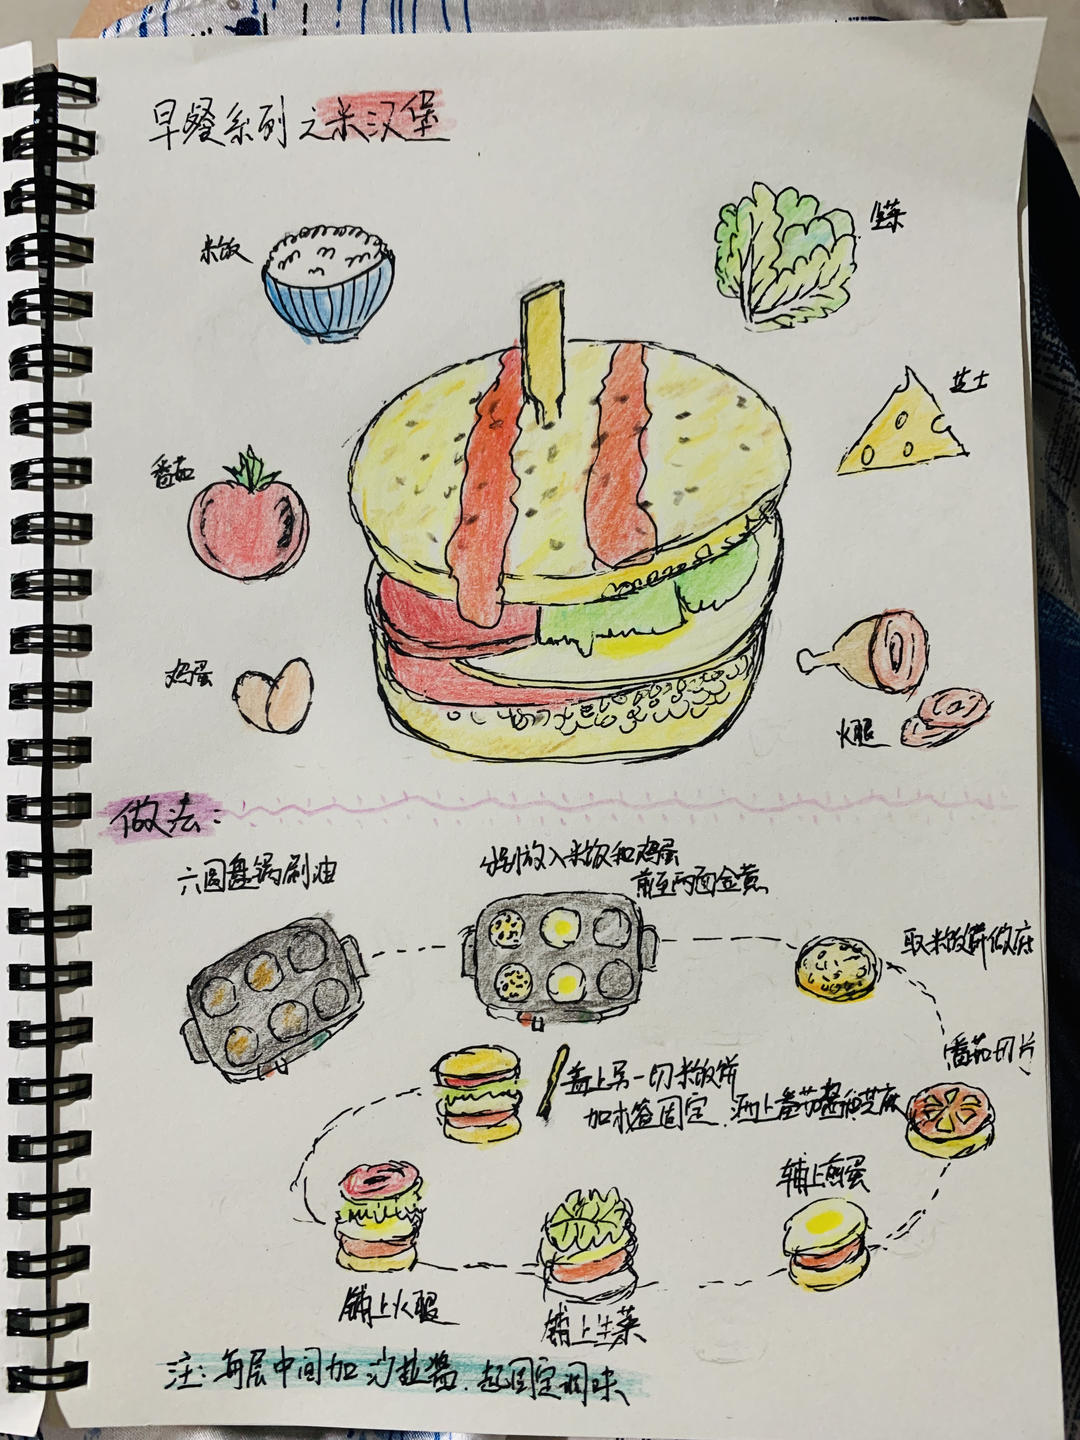 早餐系列之米汉堡
米饭
生菜
芝士
番茄
鸡蛋
火腿
做法:
六圆盘锅刷油
分别放入米饭和鸡蛋
煎至两面金黄
取米饭饼做底
番茄切片
盖上另一切米饭饼
加木签固定.洒上番茄酱和芝麻
铺上煎蛋
铺上生菜
铺上火腿
注:每层中间加沙拉酱.起固定调味